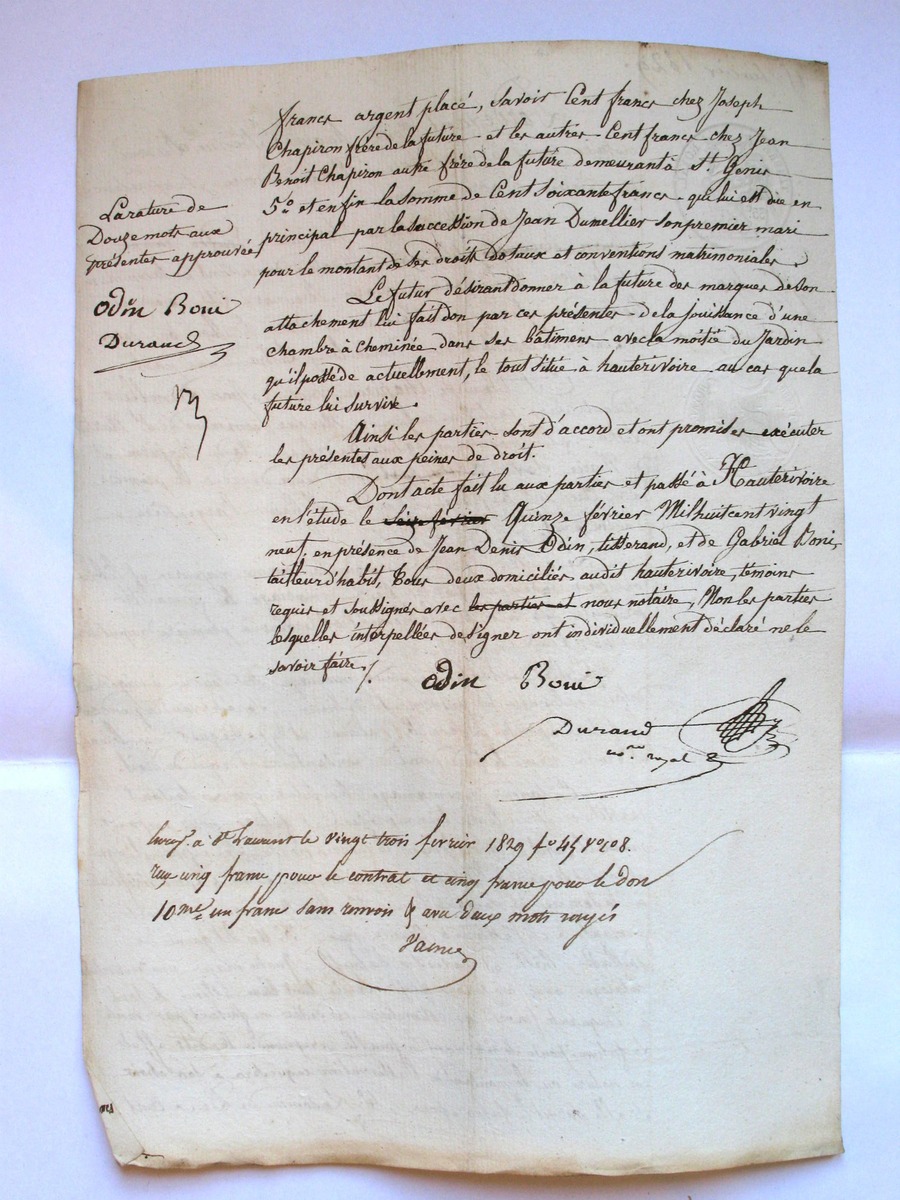 francs argent placé, savoir Cent francs chez Joseph
Chapiron frère de la future et les autres Cent francs chez Jean
Benoit Chapiron autre frère de la future demeurant à St. Genis
5.o et enfin la somme de Cent soixante francs qui lui est due en
principal par la succession de Jean Dumellier son premier mari
pour le montant de ses droits dotaux et conventions matrimoniales.
Le futur désirant donner à la future des marques de son
attachement lui fait don par ces présentes de la jouissance d'une
chambre à cheminée dans ses bâtimens avec la moitié du Jardin
qu'il possède actuellement, le tout situé à hauterivoire au cas que la
future lui survive.
Ainsi les parties sont d'accord et ont promis es exécuter
les présentes aux peines de droit.
Dont acte fait lu aux parties et passé à Hauterivoire
en l'étude le seize février Quinze février Mil huit cent vingt
neuf, en présence de Jean Denis Odin, tisserand, et de Gabriel Boni,
tailleur d'habit, tous deux domiciliés audit hauterivoire, témoins
requis et soussignés avec les parties et nous notaire, Non les parties
lesquelles interpellées de signer ont individuellement déclaré ne le
savoir faire./.
Odin Boni
Durand
no.re royal
La rature de
Douze mots aux
présentes approuvée
Odin Boni
Durand
Enreg.é à St Laurent le vingt trois fevrier 1829 fo 45 Vo c 8.
reçu cinq francs pour le contrat et cinq francs pour le don
10me un franc sans renvois & avec deux mots rayés